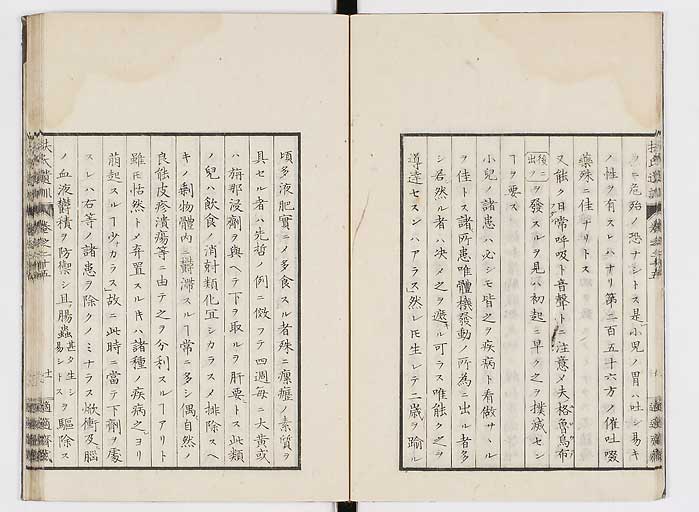 ラニ危殆ノ恐ナシトス是小兒ノ胃ハ吐シ易キ
ノ性ヲ有スレハナリ第二百五十六方ノ催吐啜
藥殊ニ佳ナリトス
又能ク日常呼吸ト音聲トニ注意メ夫格魯烏布
後ニ出ヲ發スルヲ見ハ初起ニ早ク之ヲ撲滅セン
ヿヲ要ス
小兒ノ諸患ハ必シモ皆之ヲ疾病ト看做サヽル
ヲ佳トス諸所患唯體機發動ノ所為ニ出ル者多
シ若然ル者ハ決メ之ヲ遮ル可ラス唯能ク之ヲ
導達セスンハアラス然レ𪜈生レテ二歳ヲ踰ル
頃多液肥實ニノ多食スル者殊ニ瘰癧ノ素質ヲ
具セル者ハ先哲ノ例ニ倣フテ四週毎ニ大黄或
ハ稱那浸劑ヲ與ヘテ下ヲ取ルヲ肝要トス此類
ノ兒ハ飲食ノ消耐類化宜シカラスノ排除スヘ
キノ剩物體内ニ鬱滞スルヿ常ニ多シ偶自然ノ
良能皮疹潰瘍等ニ由テ之ヲ分利スルヿアリト
雖𪜈恬然トメ弃置スル𪜈ハ諸種ノ疾病之ヨリ
萠起スルヿ少カラス故ニ此時ニ當テ下劑ヲ處
スレハ右等ノ諸患ヲ除クノミナラス焮衝及腦
ノ血液鬱積ヲ防禦シ且腸蟲甚タ生シ易シトスヲ驅除ス
扶氏遺訓 卷之二十五
適適齋藏